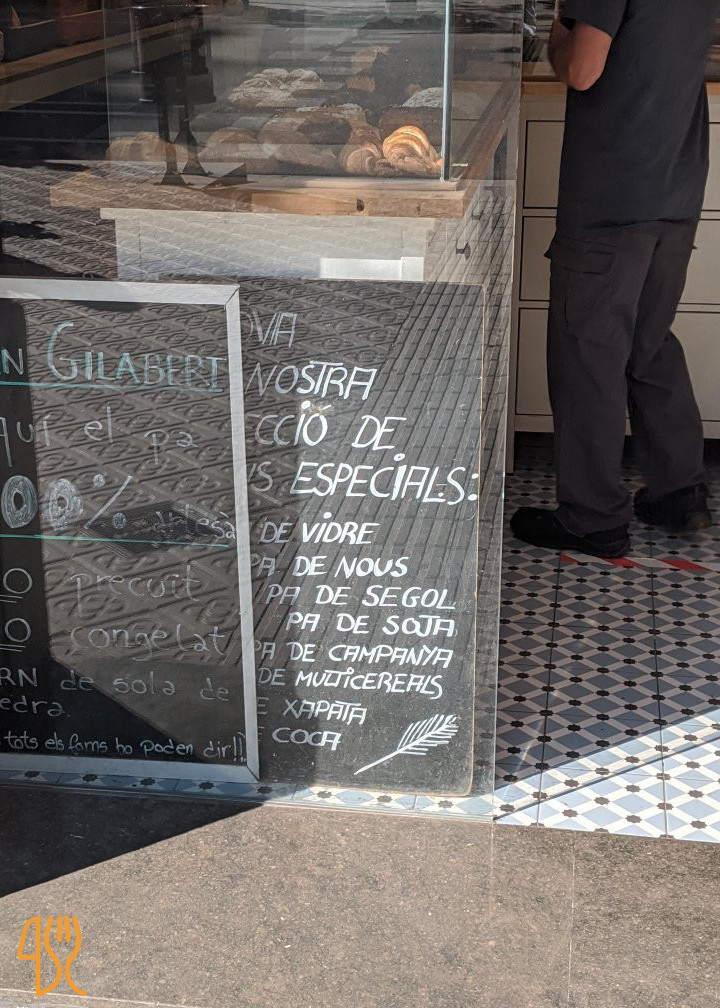 N GILABERT
quí el pa
00%
precuit
congelat
RN de sola de
edra.
tots els forns ho poden dir!!
OVIA
NOSTRA
CCIÓ DE
S ESPECIALS:
DE VIDRE
PA DE NOUS
PA DE SEGOL
PA DE SOJA
PA DE CAMPANYA
DE MULTICEREALS
E XAPATA
E COCA